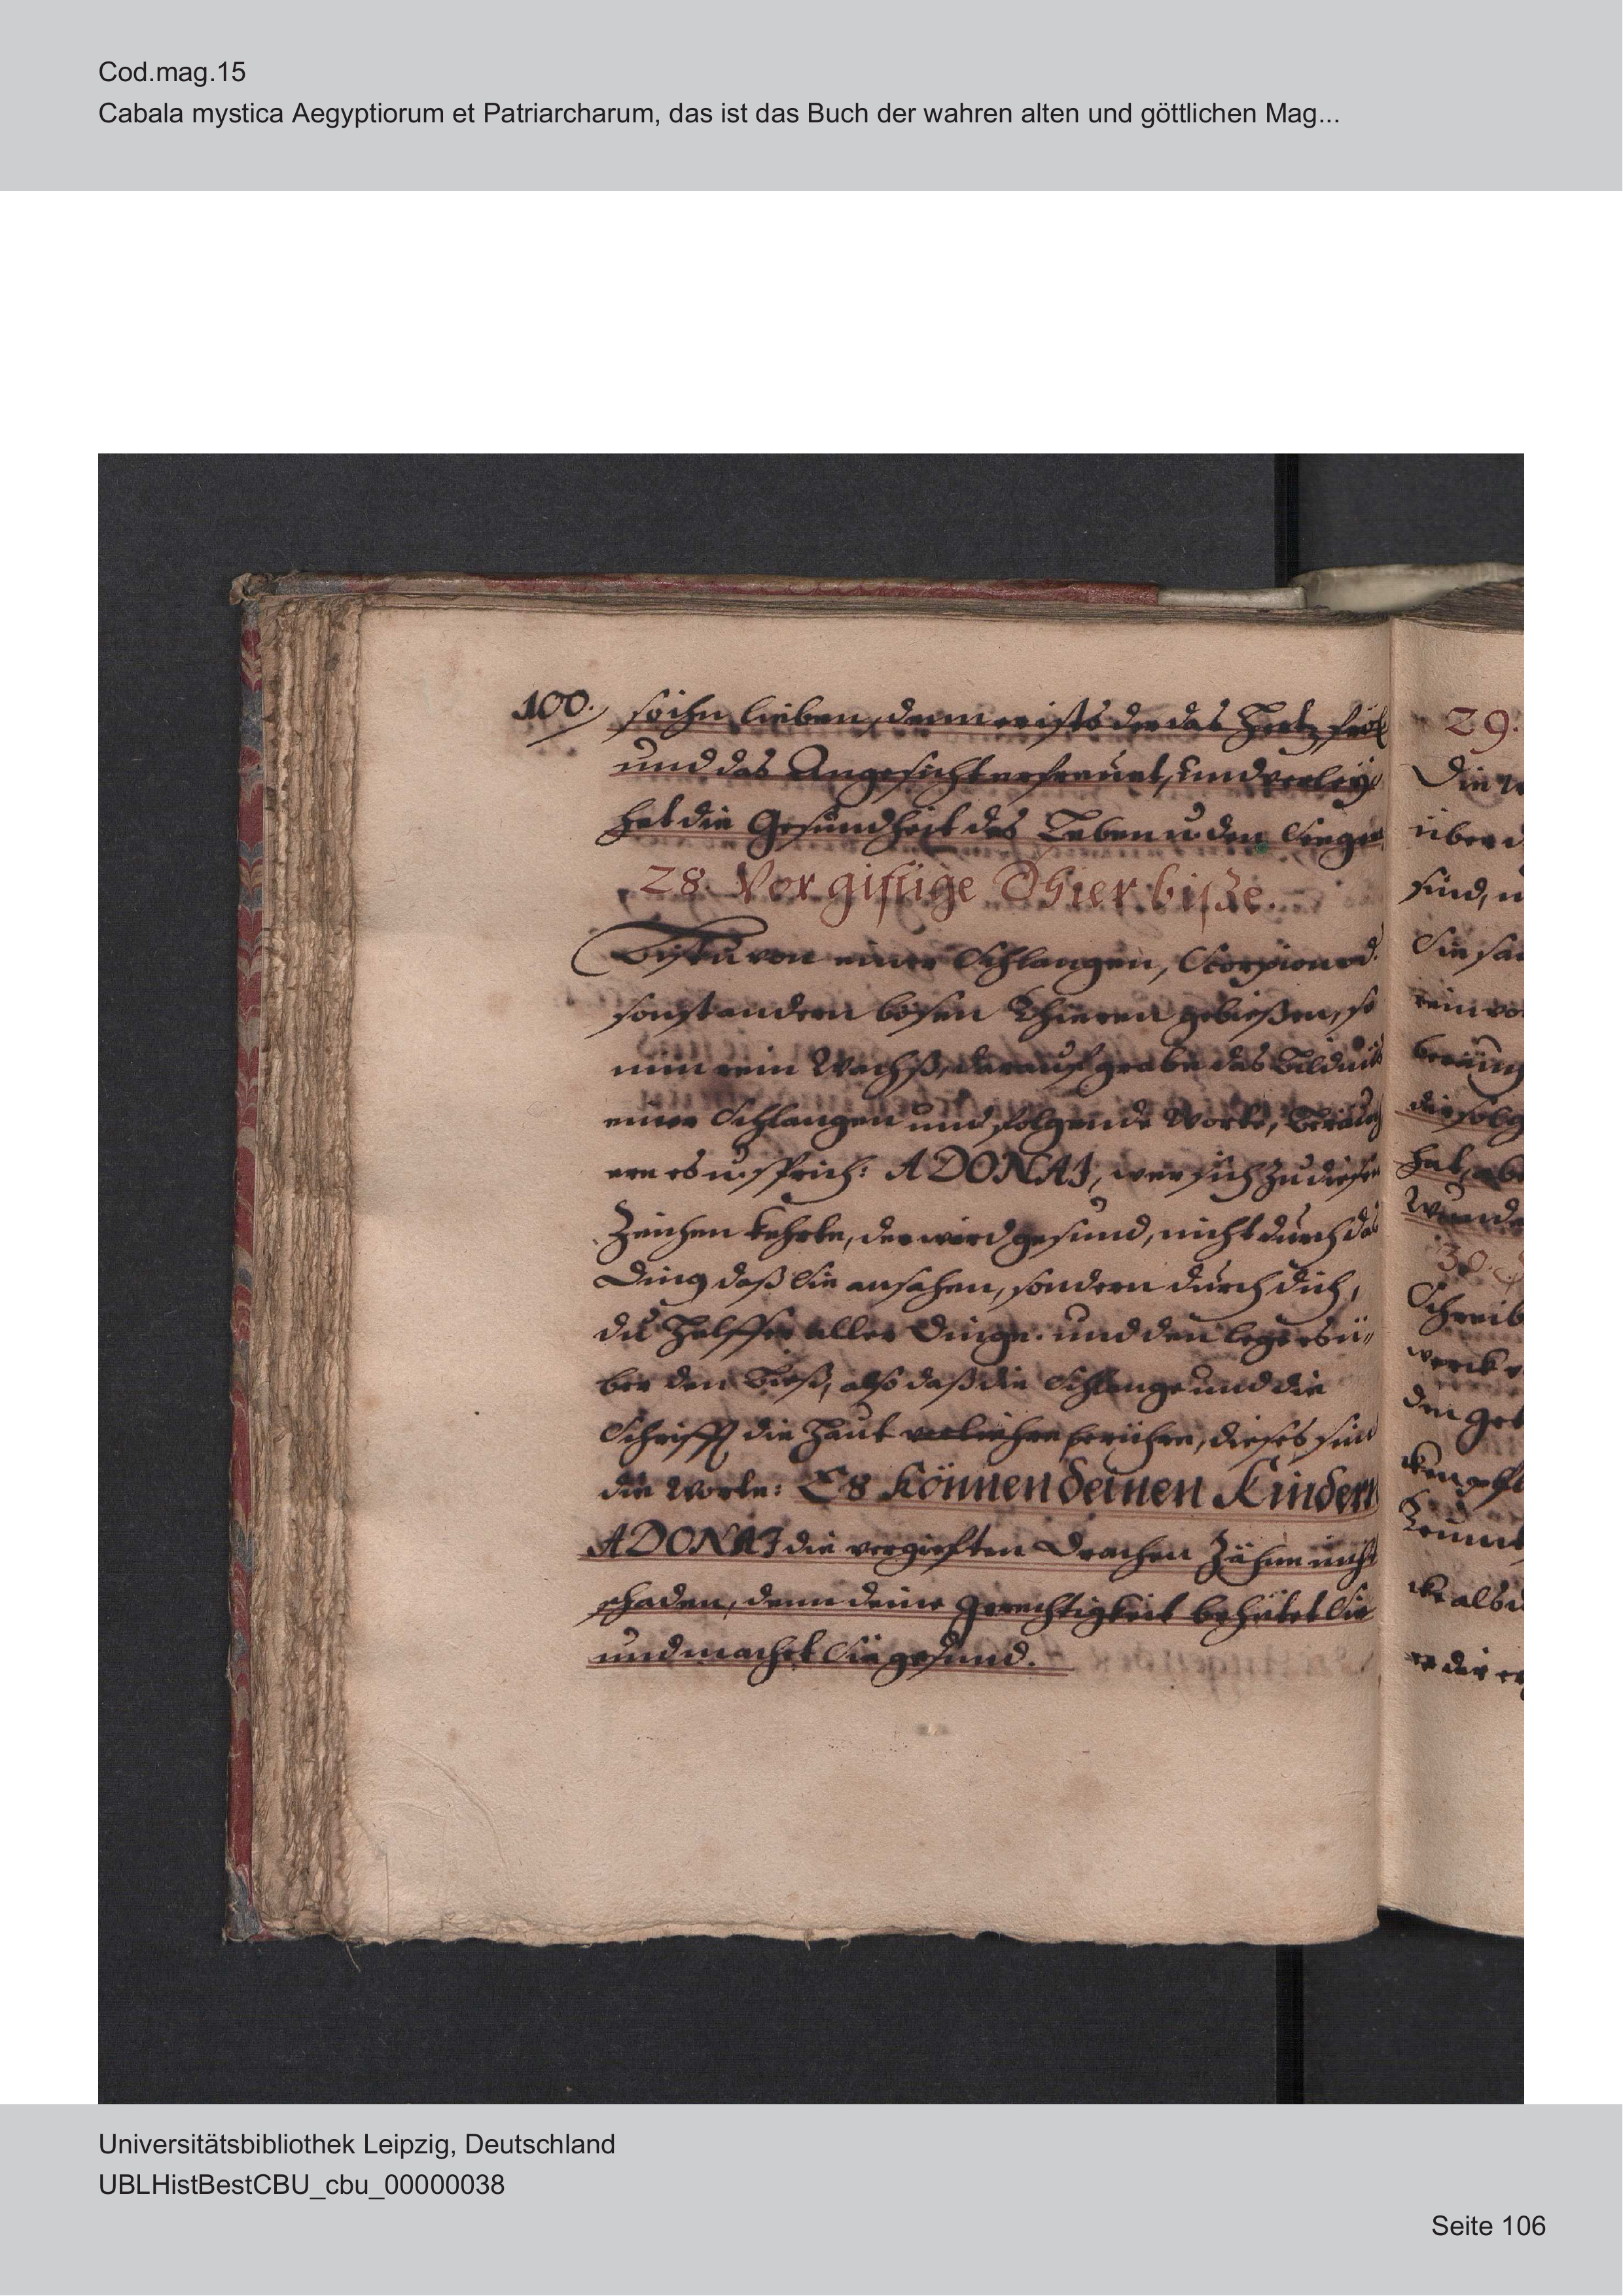 Cod.mag.15
Cabala mystica Aegyptiorum et Patriarcharum, das ist das Buch der wahren alten und göttlichen Mag...
100. so ihn lieben, denn er ists der das Hertz fröl
und das Angesicht erfreuet, und verley
het die Gesundheit des Leben u. den Seegen
28. Vor giftige Thier biße.
Bistu von einer Schlangen, Scorpion od.
sonst andern bösen Thieren gebießen, so
nim rein Wachß, darauf grabe das Bildnis
einer Schlangen und folgende Worte, beräuch
ere es u. sprich: ADONAI, wer sich zu diesen
Zeichen kehrte, der wird gesund, nicht durch das
Ding daß Sie ansahen, sondern durch dich,
du Helffer aller Dinge. und den lege es ü„
ber den Bieß, also daß die Schlange und die
Schrifft die Haut berühre, dieses sind
die Worte: Es können deinen Kindern
ADONAI die vergieften Drachen Zähne nicht
schaden, denn deine Gerechtigkeit behütet Sie
und machet Sie gesund.
29.
Die
über d
sind, u
Sie
rein
hat, abe
Wunde
30.
Schreib
werck
den
als
er dir
Universitätsbibliothek Leipzig, Deutschland
UBLHistBestCBU_cbu_00000038
Seite 106